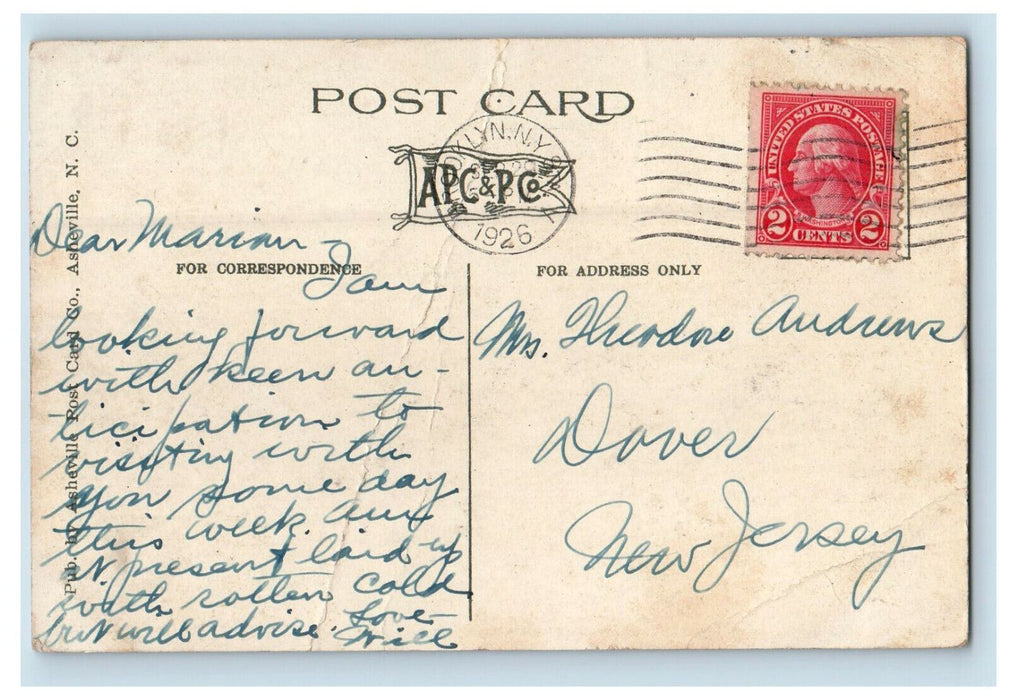 POST CARD
UNITED STATES POSTAGE
WASHINGTON
2 CENTS 2
LYN. N.Y.
1926
APC&PCo.
Pub. by Asheville Post Card Co., Asheville, N. C.
FOR CORRESPONDENCE
Dear Marian -
I am
looking forward
with keen an-
ticipation to
visiting with
you some day
this week. Am
at present laid up
with rotten cold
but will advise. Love
Will
FOR ADDRESS ONLY
Mrs. Theodore Andrews
Dover
New Jersey